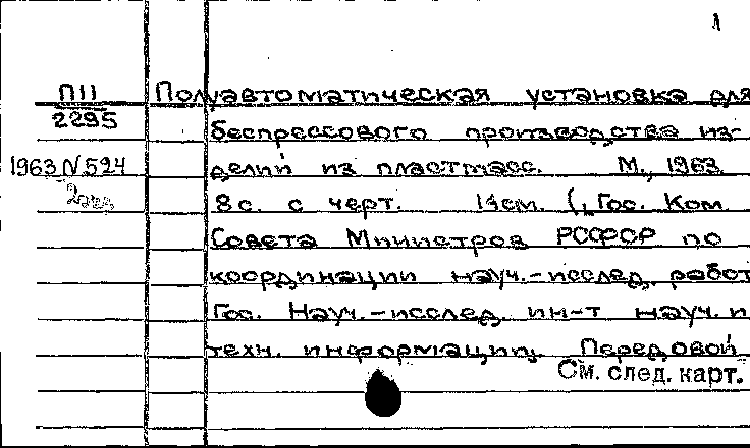 1
П11 Полуавтоматическая установка для
2295 беспрессового производства из-
1963 N 524 делий из пластмасс. М., 1963.
2экз 8 с. с черт. 14см. (Гос. Ком.
Совета Министров РСФСР по
координации науч.-исслед. работ
Гос. Науч.-исслед. ин-т науч. и
техн. информации. Передовой
См. след. карт.